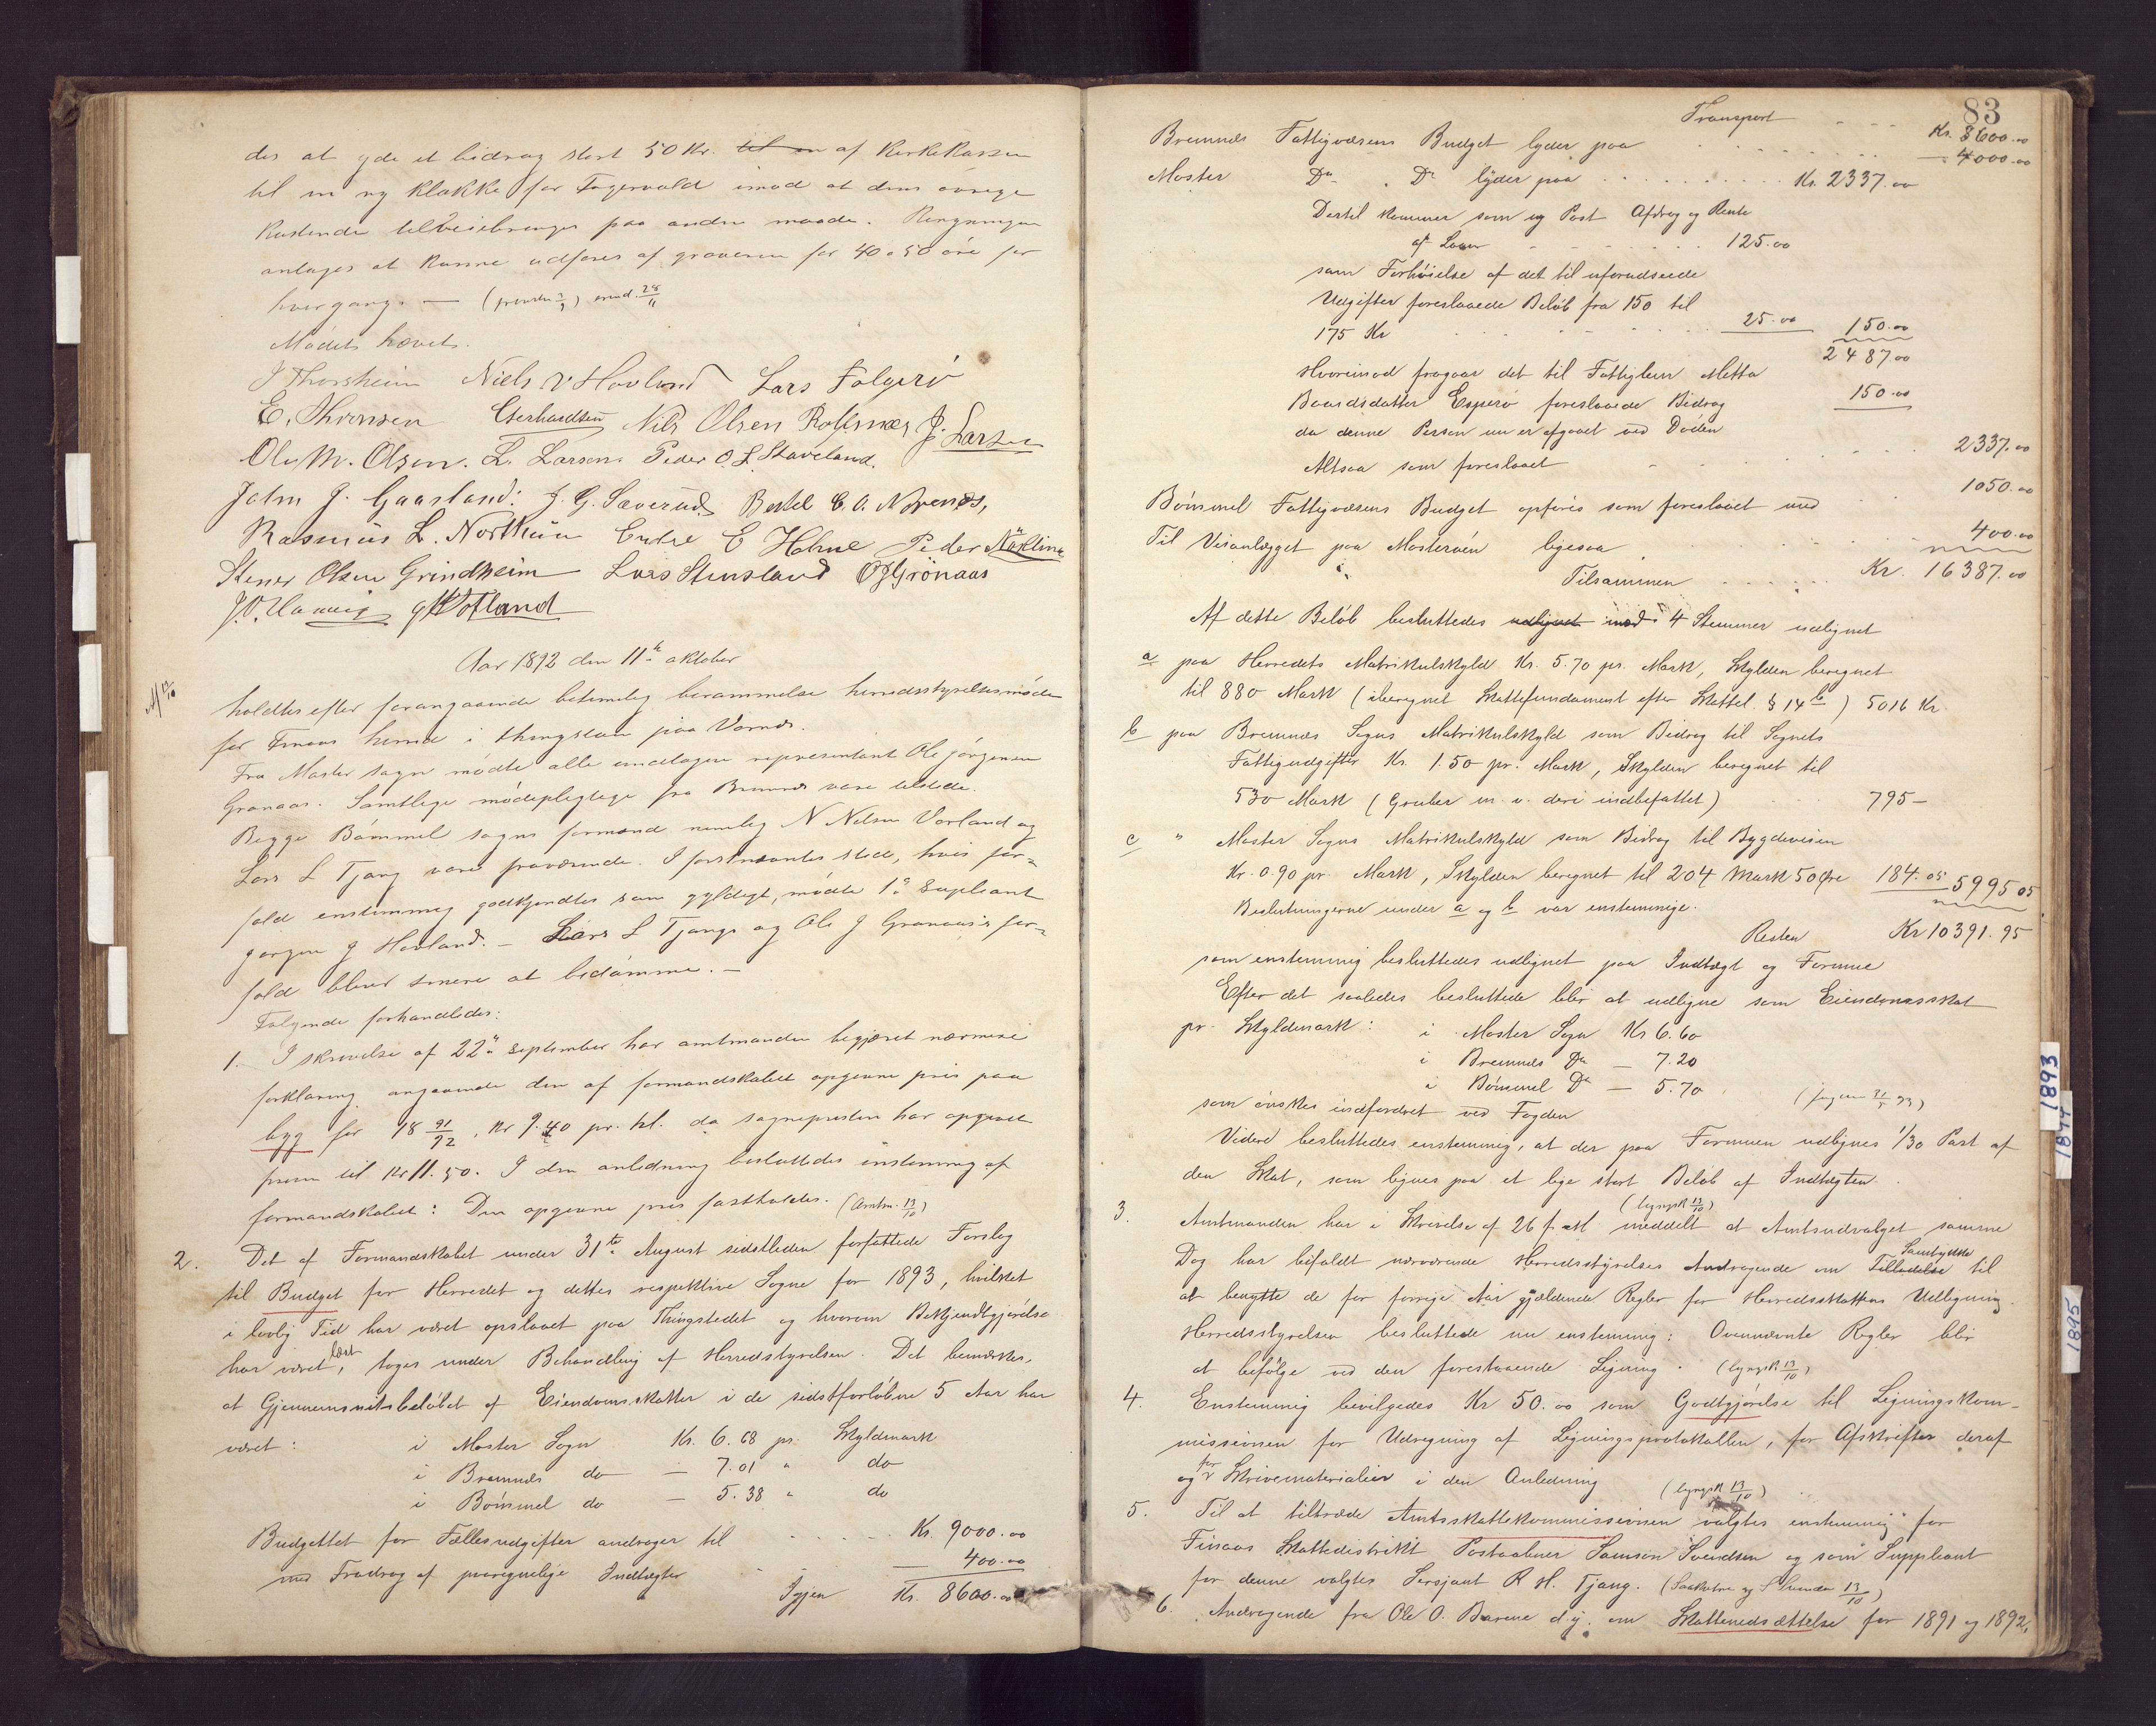 des at yde et bidrag stort 50 Kr. til en af Kirkekassen
til en ny klokke for Fogervold imod at dens øvrige
kostende tilveiebringes paa anden maade. Ringningen
antages at kunne udføres af graveren for 40 a 50 øre for
hvergang. —
Mødet hævet.
J Thorsheim Niels N Hovland Lars Folgerö
E. Thronsen Gerhardsen Nils Olsen Rolfsnæs J. Larsen
Ole M. Olsen. L. Larsen. Peder O. L. Staveland.
John J. Gaasland: J. G. Sæverud. Bertel E. O.
Rasmus L. Nortun Endre E Holme Peder Nökling
Stener Olsen Grindheim Lars Stensland O J Grönaas
J. O. Hovland
Aar 1892 den 11te oktober
holdtes efter forangaaende betimelig berammelse herredsstyrelsesmøde
for Finaas herred i thingstuen paa Vornæs.
Fra Moster sogn mødte alle undtagen representant Ole Jørgensen
Grønaas. Samtlige mødepligtige fra Bremnæs vare tilstede.
Begge Bømmel sogns formænd nemlig N Nilsen Vorland og
Lars L Tjong vare fraværende. I førstnævntes sted, hvis for=
fald enstemmig godkjendtes som gyldigt, mødte 1ste supleant
Jørgen J Hovland. — Lars L Tjongs og Ole J Grønaas's for=
fald bliver senere at bedømme. —
Følgende forhandledes:
1. I skrivelse af 22de september har amtmanden begjæret nærmere
forklaring angaaende den af formandskabet opgivne pris paa
byg for 18 91/92, Kr 9.40 pr. hl. da sognepresten har opgivet
prisen til Kr 11.50. I den anledning besluttedes enstemmig af
formandskabet: Den opgivne pris fastholdes. (Amtm. 13/10)
2. Det af Formandskabet under 31te August sidstleden forfattede Forslag
til Budget for Herredet og dettes respektive Sogne for 1893, hvilket
i lovlig Tid har været opslaaet paa Thingstedet og hvorom Bekjendtgjørelse
har været læst, toges under Behandling af Herredstyrelsen. Det bemærkes,
at Gjennemsnitsbeløbet af Eiendomsskatter i de sidstforløbne 5 Aar har
været: i Moster Sogn Kr. 6.68 pr. Skyldmark
i Bremnæs do — 7.01 " do
i Bømmel do — 5.38 " do
Budgettet for Fællesudgifter andrager til Kr. 9000.00
med Fradrag af paaregnelige Indtægter — 400.00
Igjen Kr. 8600.00
83
Transport Kr. 8600.00
Bremnæs Fattigvæsens Budget lyder paa — 4000.00
Moster Do Do lyder paa Kr. 2337.00
Dertil kommer som ny Post Afdrag og Rente
af Laan 125.00
som Forhøielse af det til uforudseede
Udgifter foreslaaede Beløb fra 150 til
175 Kr 25.00 150.00
2487.00
Hvorimod fragaar det til Fattiglem Metta
Baardsdatter Esperø foreslaaede Bidrag 150.00
da denne Person nu er afgaaet ved Døden
Altsaa som foreslaaet 2337.00
Bømmel Fattigvæsens Budget opføres som foreslaaet med 1050.00
Til Veianlægget paa Mosterøen ligesaa 400.00
Tilsammen Kr. 16387.00
Af dette Beløb besluttedes udlignet med 4 Stemmer udlignet
a paa Herredets Matrikulskyld Kr. 5.70 pr. Mark, Skylden beregnet
til 880 Mark (iberegnet Skattefundament efter Skattel. § 14 b) 5016 Kr
b paa Bremnæs Sogns Matrikulskyld som Bidrag til Sognets
Fattigudgifter Kr. 1.50 pr. Mark, Skylden beregnet til
530 Mark (Gruber m. v. deri indbefattet) 795 —
c " Moster Sogns Matrikulskyld som Bidrag til Bygdeveien
Kr. 0.90 pr. Mark, Skylden beregnet til 204 Mark 50 Øre 184.05 5995 05
Beslutningerne under a og b var enstemmige.
Resten Kr 10391.95
som enstemmig besluttedes udlignet paa Indtægt og Formue
Efter det saaledes besluttede blir at udligne som Eiendomsskat
pr. Skyldmark: i Moster Sogn Kr 6.60
i Bremnæs Do — 7.20
i Bømmel Do — 5.70
som ønskes indfordret ved Fogden
Videre besluttedes enstemmig, at der paa Formuen udlignes 1/30 Part af
den Skat, som lignes paa et lige stort Beløb af Indtægten.
(lignpk 13/10)
3. Amtmanden har i Skrivelse af 26 f. M. meddelt at Amtsudvalget samme
Dag har bifaldt nærværende Herredsstyrelses Andragende om Tilladelse Samtykke til
at benytte de for forrige Aar gjældende Regler for Herredsskattens Udligning.
Herredsstyrelsen besluttede nu enstemmig: Ovennævnte Regler blir
at befølge ved den forestaaende Ligning. (lignpk 13/10)
4. Enstemmig bevilgedes Kr 50.00 som Godtgjørelse til Ligningskom-
missionen for Udregning af Ligningsprotokollen, for Afskrifter deraf
og for Skrivematerialier i den Anledning (lignpk 13/10)
5. Til at tiltræde Amtsskattekommissionen valgtes enstemmig for
Finaas Skattedistrikt Postaabner Samson Svendsen og som Suppleant
for denne valgtes Sersjant R H. Tjong.
6. Andragende fra Ole O. Barene d.y. om Skattenedsættelse for 1891 og 1892,
1893
1894
1895